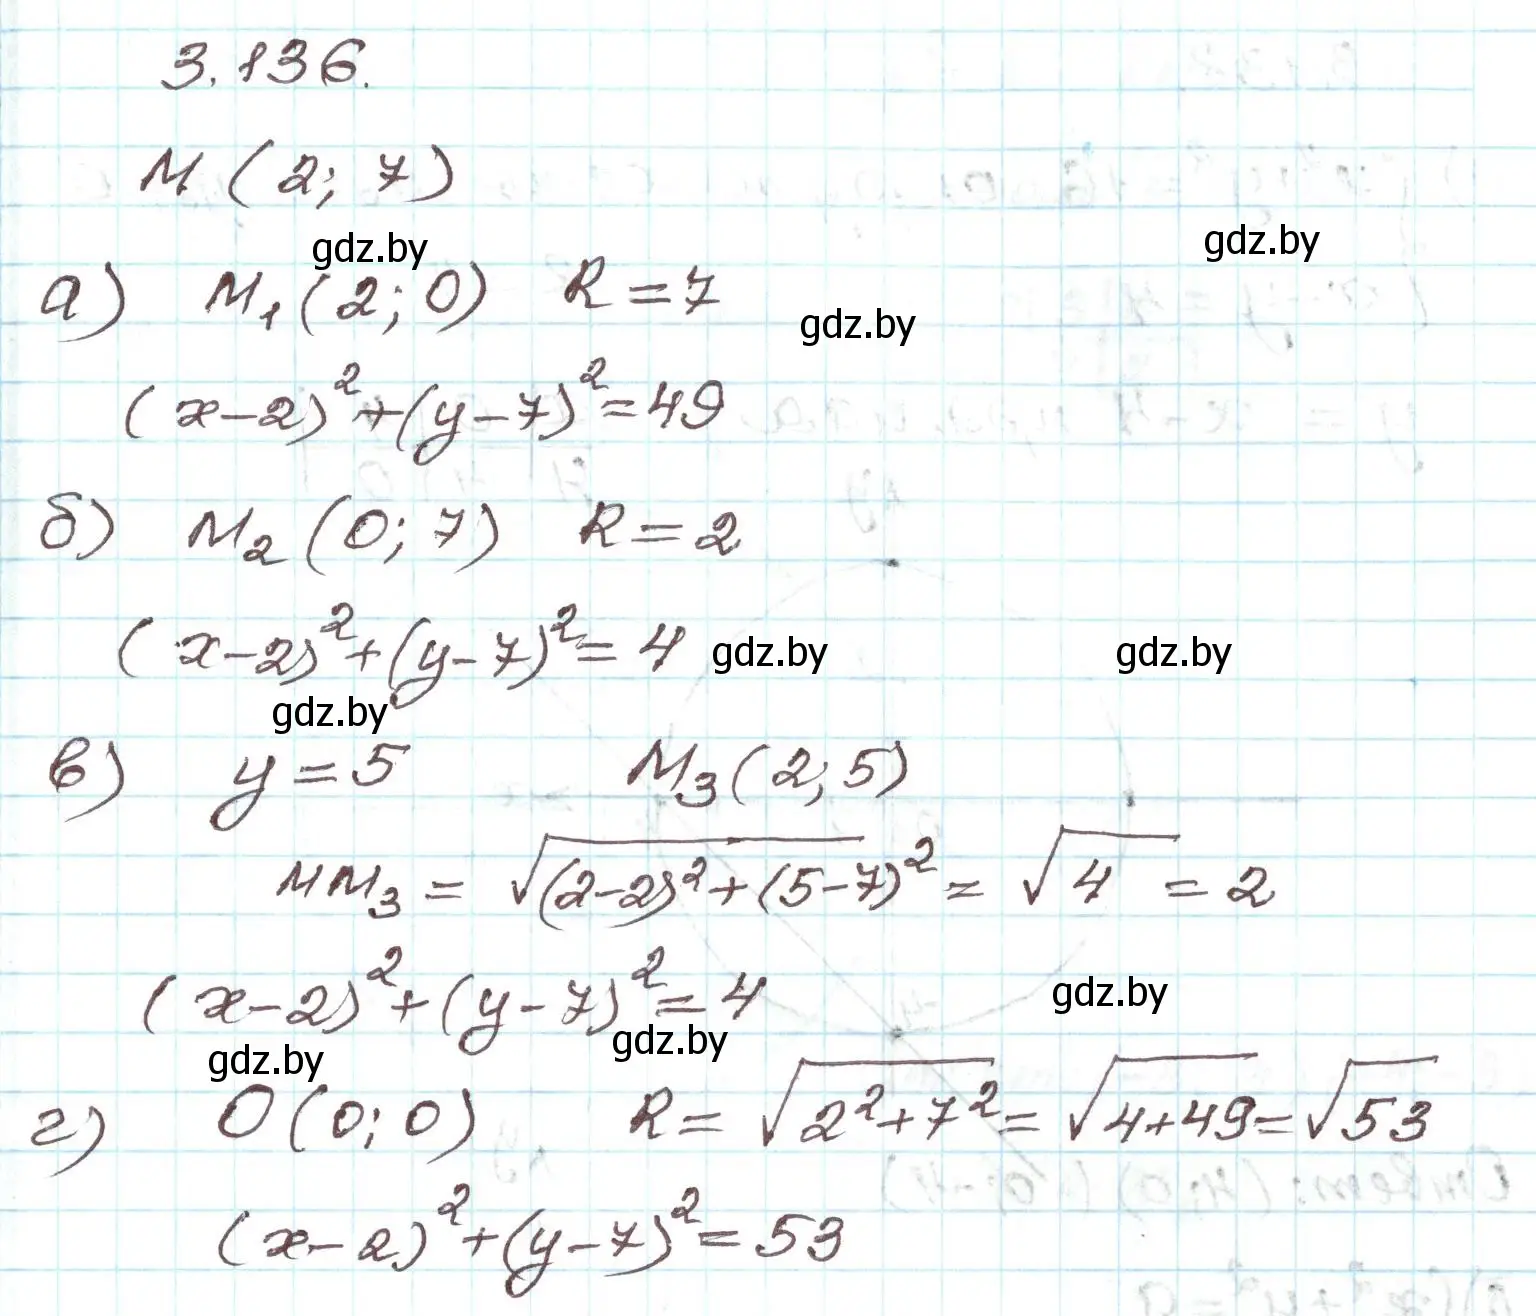 3.136.
M (2; 7)
gdz.by gdz.by
а) M₁ (2; 0) R = 7
gdz.by
(x-2)² + (y-7)² = 49
б) M₂ (0; 7) R = 2
(x-2)² + (y-7)² = 4 gdz.by gdz.by
gdz.by
в) y = 5 M₃ (2; 5)
MM₃ = √((2-2)² + (5-7)²) = √4 = 2
(x-2)² + (y-7)² = 4 gdz.by
gdz.by gdz.by
г) O (0; 0) R = √(2² + 7²) = √(4+49) = √53
(x-2)² + (y-7)² = 53